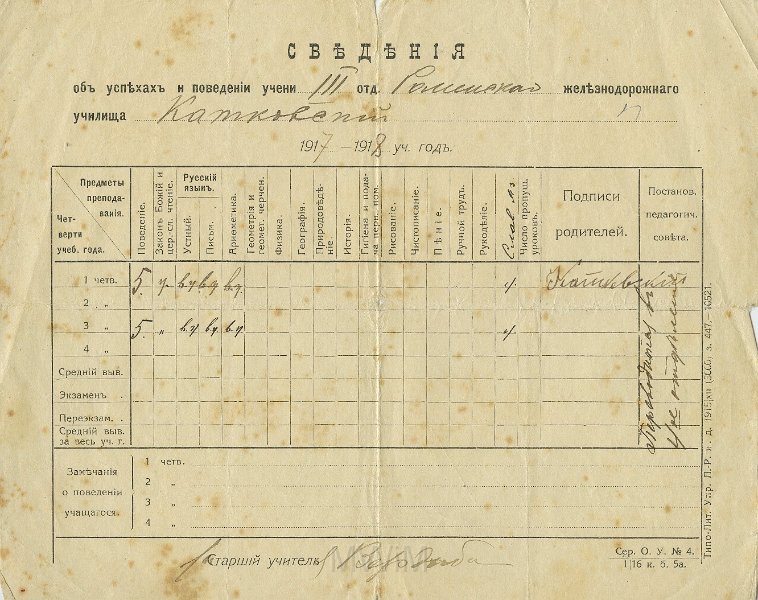 СВѢДѢНІЯ
объ успѣхахъ и поведеніи учени III отд. Роменская желѣзнодорожнаго
училища Катковскій
1917 – 1918 уч. годъ.
Предметы преподаванія.
Четверти учеб. года.
Поведеніе.
Законъ Божій и цер.-сл. чтеніе.
Русскій языкъ.
Устный.
Письм.
Ариѳметика.
Геометрія и геомет. черчен.
Физика.
Географія.
Природовѣдѣніе.
Исторія.
Гигіена и подача перв. пом.
Рисованіе.
Чистописаніе.
Пѣніе.
Ручной трудъ.
Рукодѣліе.
Слав. яз.
Число пропущ. уроковъ.
Подписи родителей.
Постанов. педагогич. совѣта.
1 четв. 5. у. ву ву ву. у Катковскій
2 „
3 „ 5. „ ву ву. ву у
4 „
Средній выв.
Экзаменъ .
Переэкзам. .
Средній выв. за весь уч. г.
Переводится въ
отдѣленіе
Замѣчанія о поведеніи учащагося.
1 четв.
2 „
3 „
4 „
Старшій учитель
Сер. О. У. № 4.
1|16 к. б. 5а.
Типо-Лит. Упр. Л.-Р. ж. д. 1915